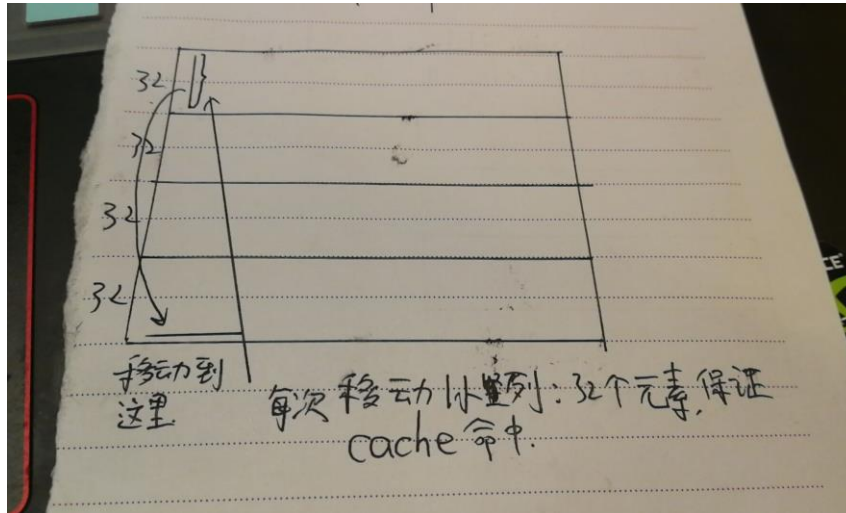 32
32
32
32
移动到
这里
每次移动1小竖列:32个元素,保证
cache命中.